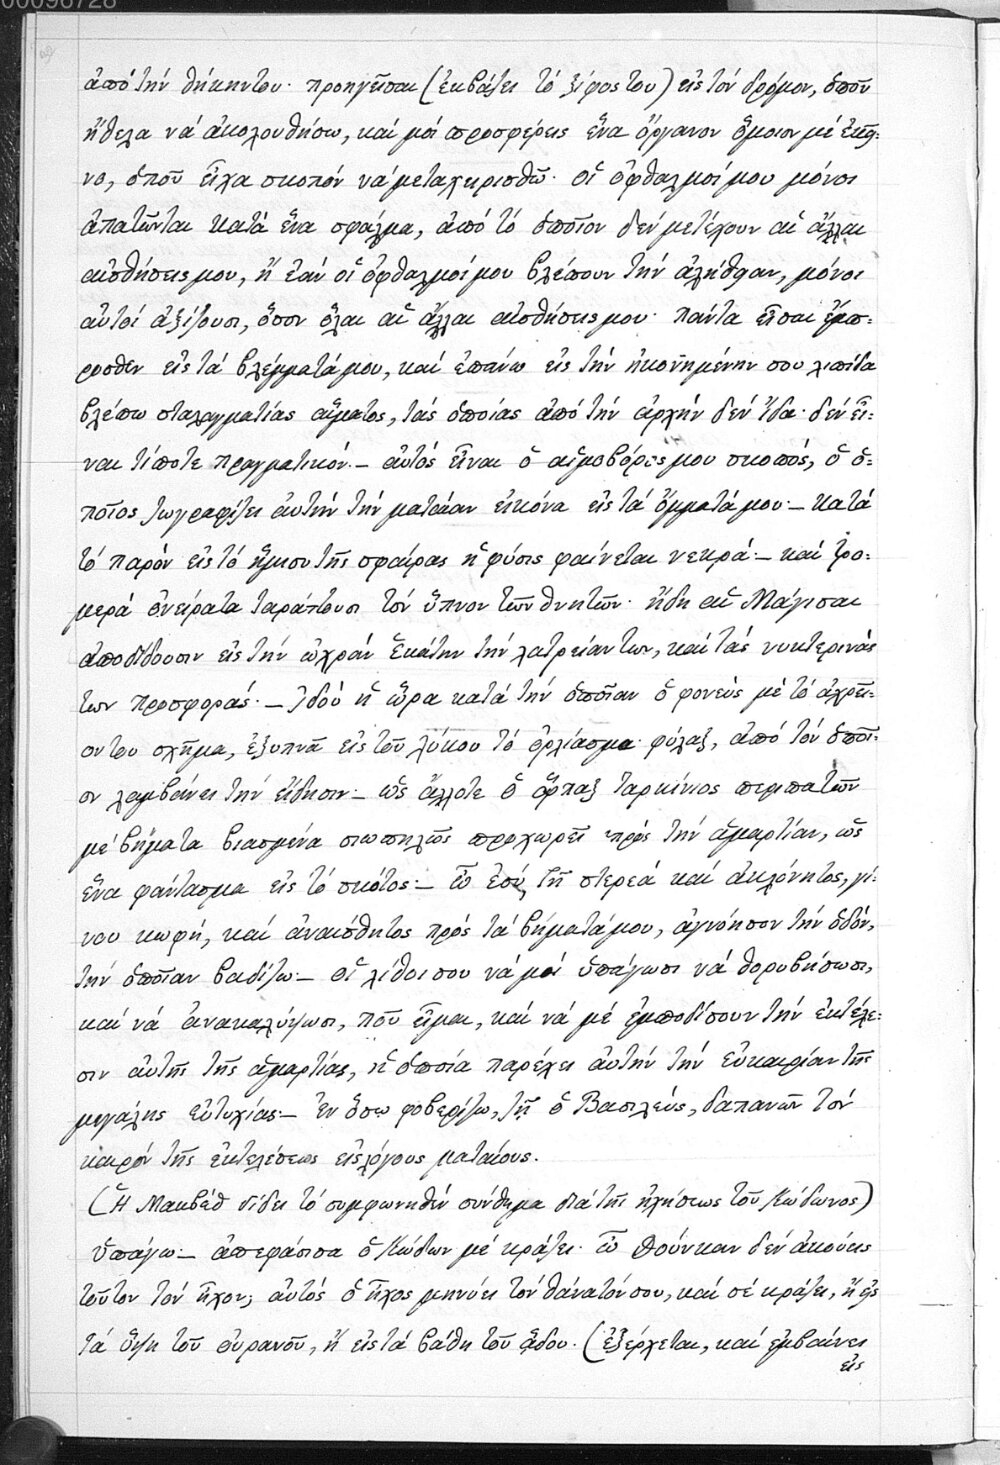 00096728
ἀπό τήν θήκην του· προηγεῖσαι (ἐκβάζει τό ξίφος του) εἰς τόν δρόμον, ὁποῦ
ἤθελα νά ἀκολουθήσω, καί μοί προσφέρεις ἕνα ὄργανον ὅμοιον μέ ἐκεῖ-
νο, ὁποῦ εἶχα σκοπόν νά μεταχειρισθῶ· οἱ ὀφθαλμοί μου μόνοι
ἀπατῶνται κατά ἕνα σφάλμα, ἀπό τό ὁποῖον δέν μετέχουν αἱ ἄλλαι
αἰσθήσεις μου, ἤ ἐάν οἱ ὀφθαλμοί μου βλέπουν τήν ἀλήθειαν, μόνοι
αὐτοί ἀξίζουσι, ὅσον ὅλαι αἱ ἄλλαι αἰσθήσεις μου· πάντα εἶσαι ἔμπ-
ροσθεν εἰς τά βλέμματά μου, καί ἐπάνω εἰς τήν ἠκονημένην σου λεπίδα
βλέπω σταλαγματίας αἵματος, τάς ὁποίας ἀπό τήν ἀρχήν δέν ἴδα· δέν εἶ-
ναι τίποτε πραγματικόν.– αὐτός εἶναι ὁ αἱμοβόρος μου σκοπός, ὁ ὁ-
ποῖος ζωγραφίζει αὐτήν τήν ματαίαν εἰκόνα εἰς τά ὄμματά μου·– Κατά
τό παρόν εἰς τό ἥμισυ τῆς σφαίρας ἡ φύσις φαίνεται νεκρά·– καί τρο-
μερά ὀνείρατα ταράττουσι τόν ὕπνον τῶν θνητῶν· ἤδη αἱ Μάγισαι
ἀποδίδουσιν εἰς τήν ὠχράν Ἑκάτην τήν λατρείαν των, καί τάς νυκτερινάς
των προσφοράς·– Ἰδού ἡ ὥρα κατά τήν ὁποῖαν ὁ φονεύς μέ τό ἀχρεῖ-
ον του σχῆμα, ἐξυπνᾶ εἰς τοῦ λύκου τό ὀρλίασμα· φύλαξ, ἀπό τόν ὁποῖ-
ον λαμβάνει τήν εἴδησιν·– ὡς ἄλλοτε ὁ ἅρπαξ Ταρκίνιος περιπατῶν
μέ βήματα βιασμένα σιωπηλῶς προχωρεῖ πρός τήν ἁμαρτίαν, ὡς
ἕνα φάντασμα εἰς τό σκότος:– ὦ ἐσύ, γῆ στερεά καί ἀκλόνητος, γί-
νου κωφή, καί ἀναίσθητος πρός τά βήματά μου, ἀγνόησον τήν ὁδόν,
τήν ὁποῖαν βαδίζω:– οἱ λίθοι σου νά μοί ὑπάγωσι νά θορυβήσωσι,
καί νά ἀνακαλύψωσι, ποῦ εἶμαι, καί νά μέ ἐμποδίσουν τήν ἐκτέλε-
σιν αὐτῆς τῆς ἁμαρτίας, ἡ ὁποία παρέχει αὐτήν τήν εὐκαιρίαν τῆς
μεγάλης εὐτυχίας·– ἐν ὅσω φοβερίζω, ζῆ ὁ Βασιλεύς, δαπανῶν τόν
καιρόν τῆς ἐκτελέσεως εἰς λόγους ματαίους.
(Ἡ Μακβέθ δίδει τό συμφωνηθέν σύνθημα διά τῆς ἠχήσεως τοῦ Κώδωνος)
ὑπάγω:– ἀπεφάσισα ὁ Κώδων μέ κράζει· ὦ Δούνκαν δέν ἀκούεις
τοῦτον τόν ἦχον; αὐτός ὁ ἦχος μηνύει τόν θάνατόν σου, καί σέ κράζει, ἤ εἰς
τά ὕψη τοῦ οὐρανοῦ, ἤ εἰς τά βάθη τοῦ ᾅδου. (ἐξέρχεται, καί ἐμβαίνει
εἰς